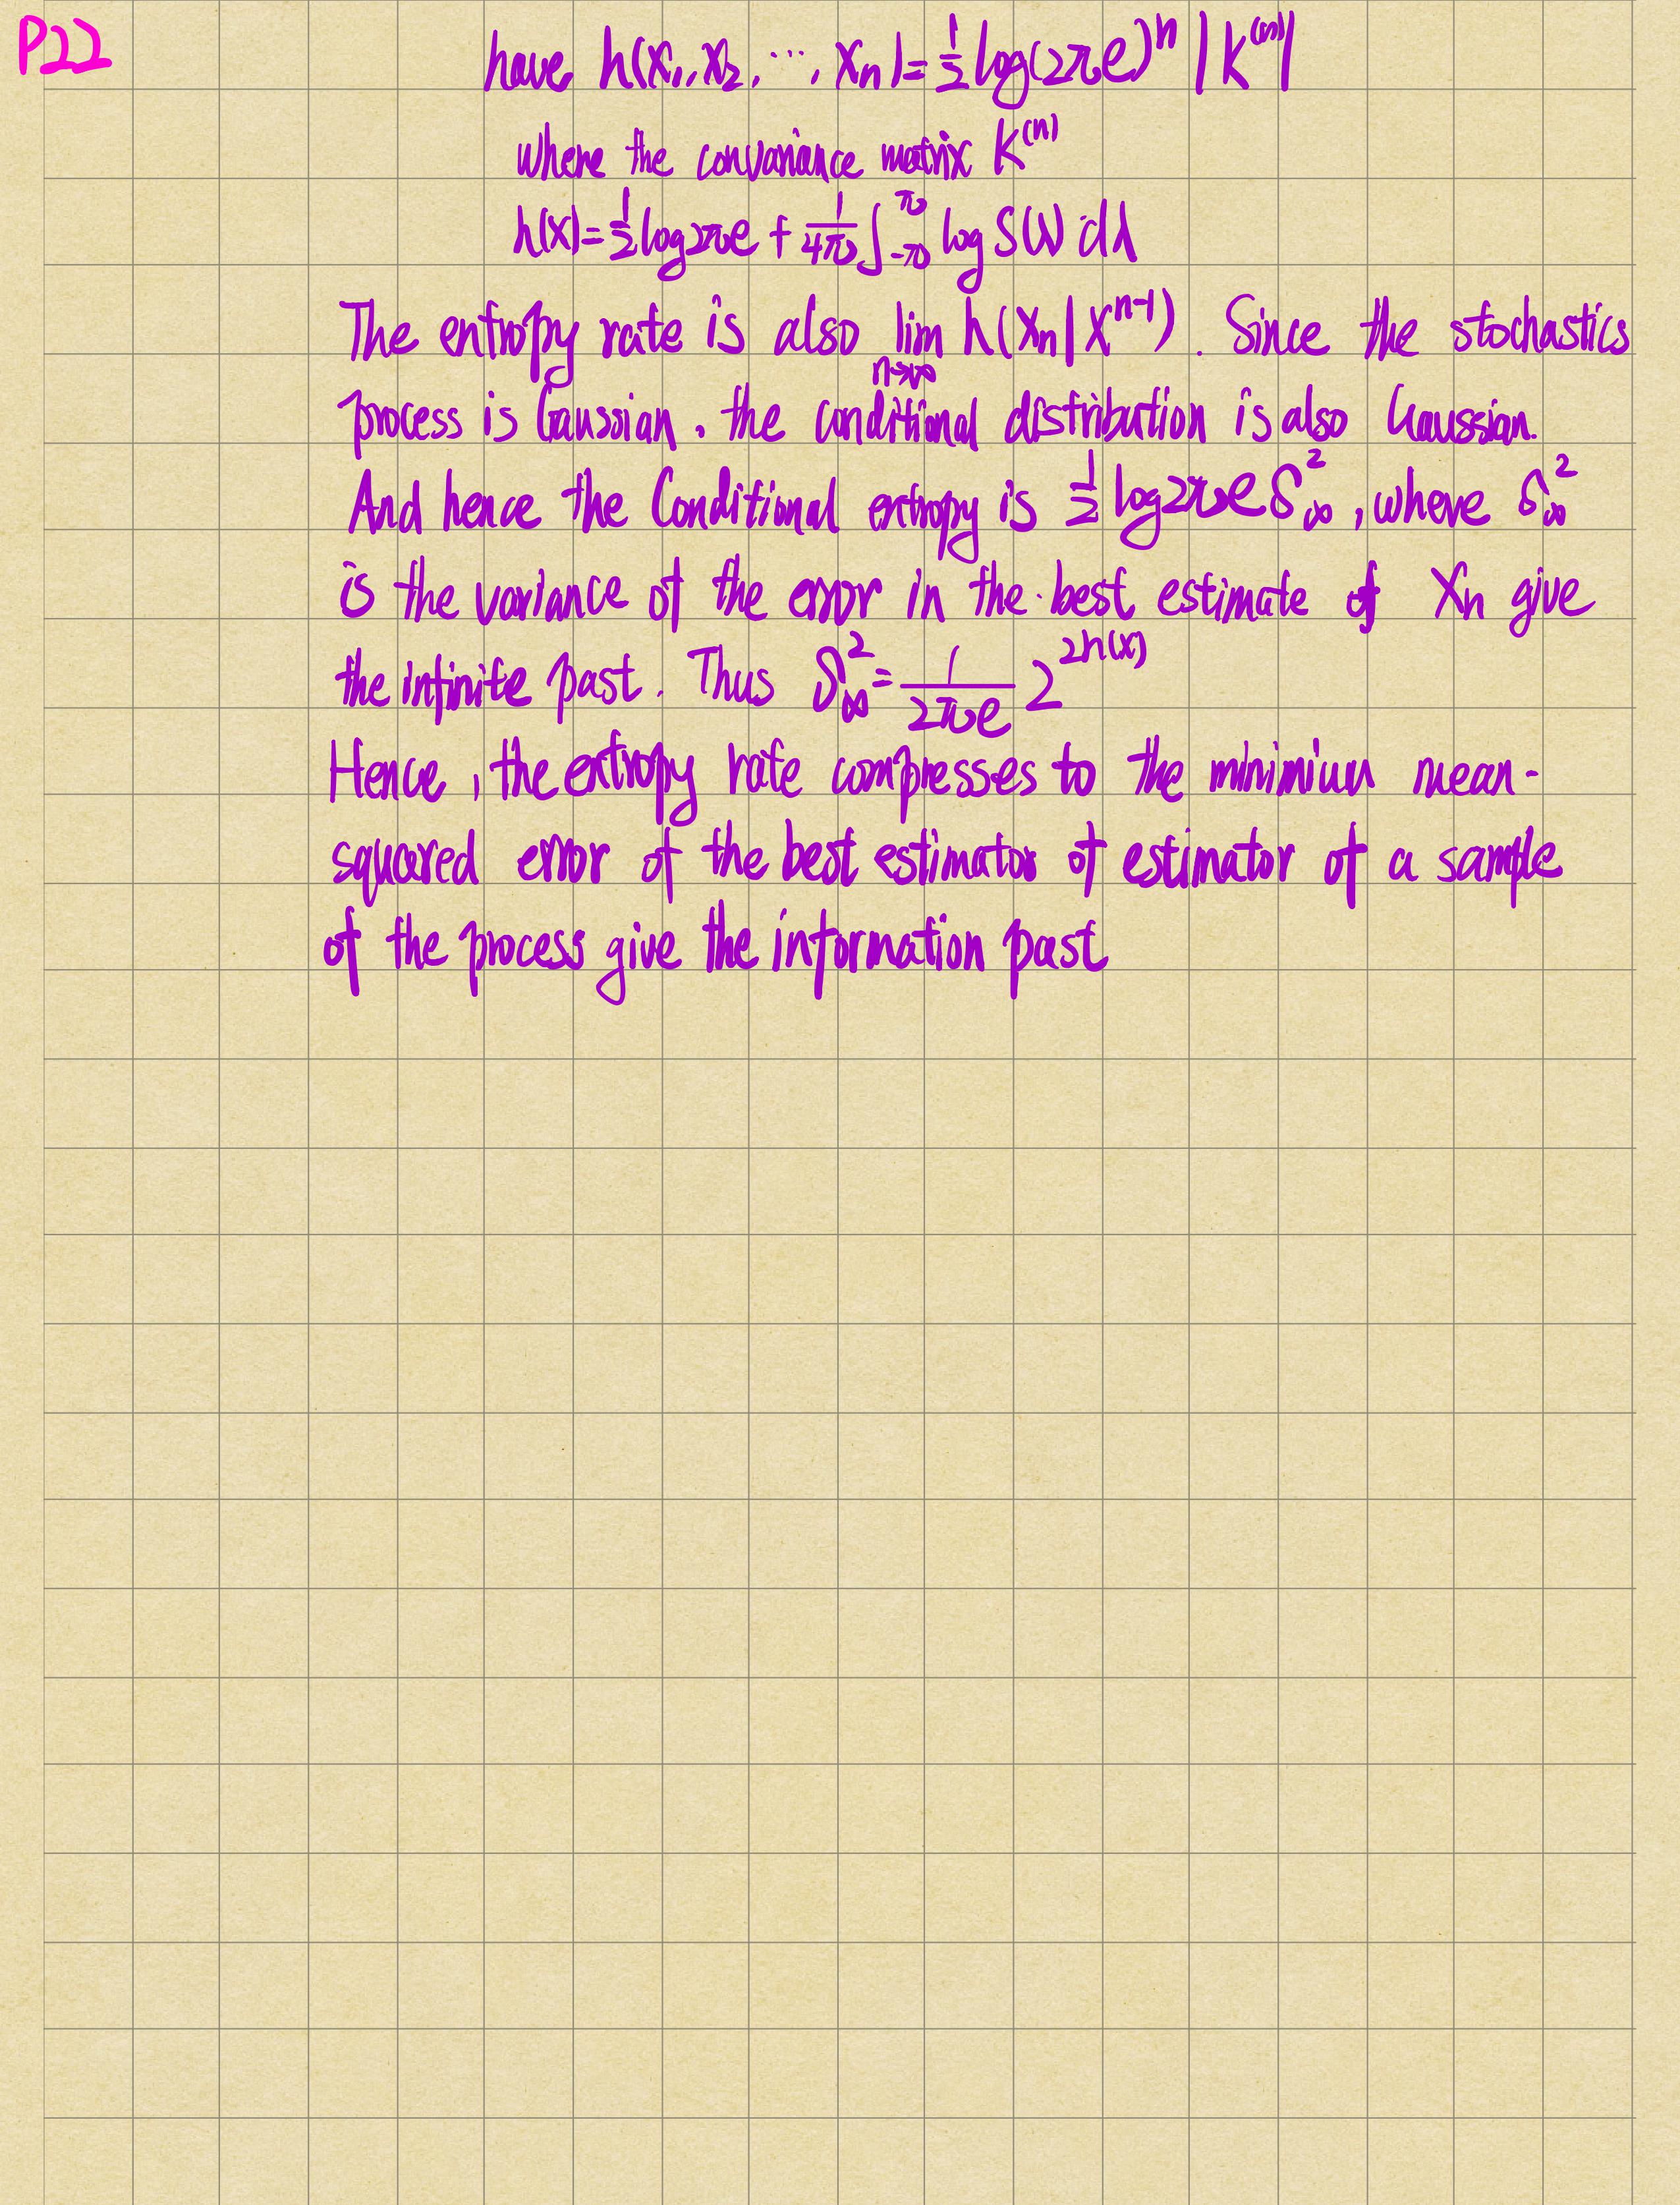 P22
have h(x₁, x₂, ⋯, xₙ) = ½ log(2πe)ⁿ |K⁽ⁿ⁾|
where the convariance matrix K⁽ⁿ⁾
h(x) = ½ log 2πe + 1/4π ∫_{-π}^{π} log S(λ) dλ
The entropy rate is also lim_{n→∞} h(xₙ | xⁿ⁻¹). Since the stochastics
process is Gaussian, the conditional distribution is also Gaussian.
And hence the Conditional entropy is ½ log 2πe δ²_∞, where δ²_∞
is the variance of the error in the best estimate of Xₙ give
the infinite past. Thus δ²_∞ = 1/(2πe) 2^{2h(x)}
Hence, the entropy rate compresses to the minimium mean-
squared error of the best estimator of estimator of a sample
of the process give the information past